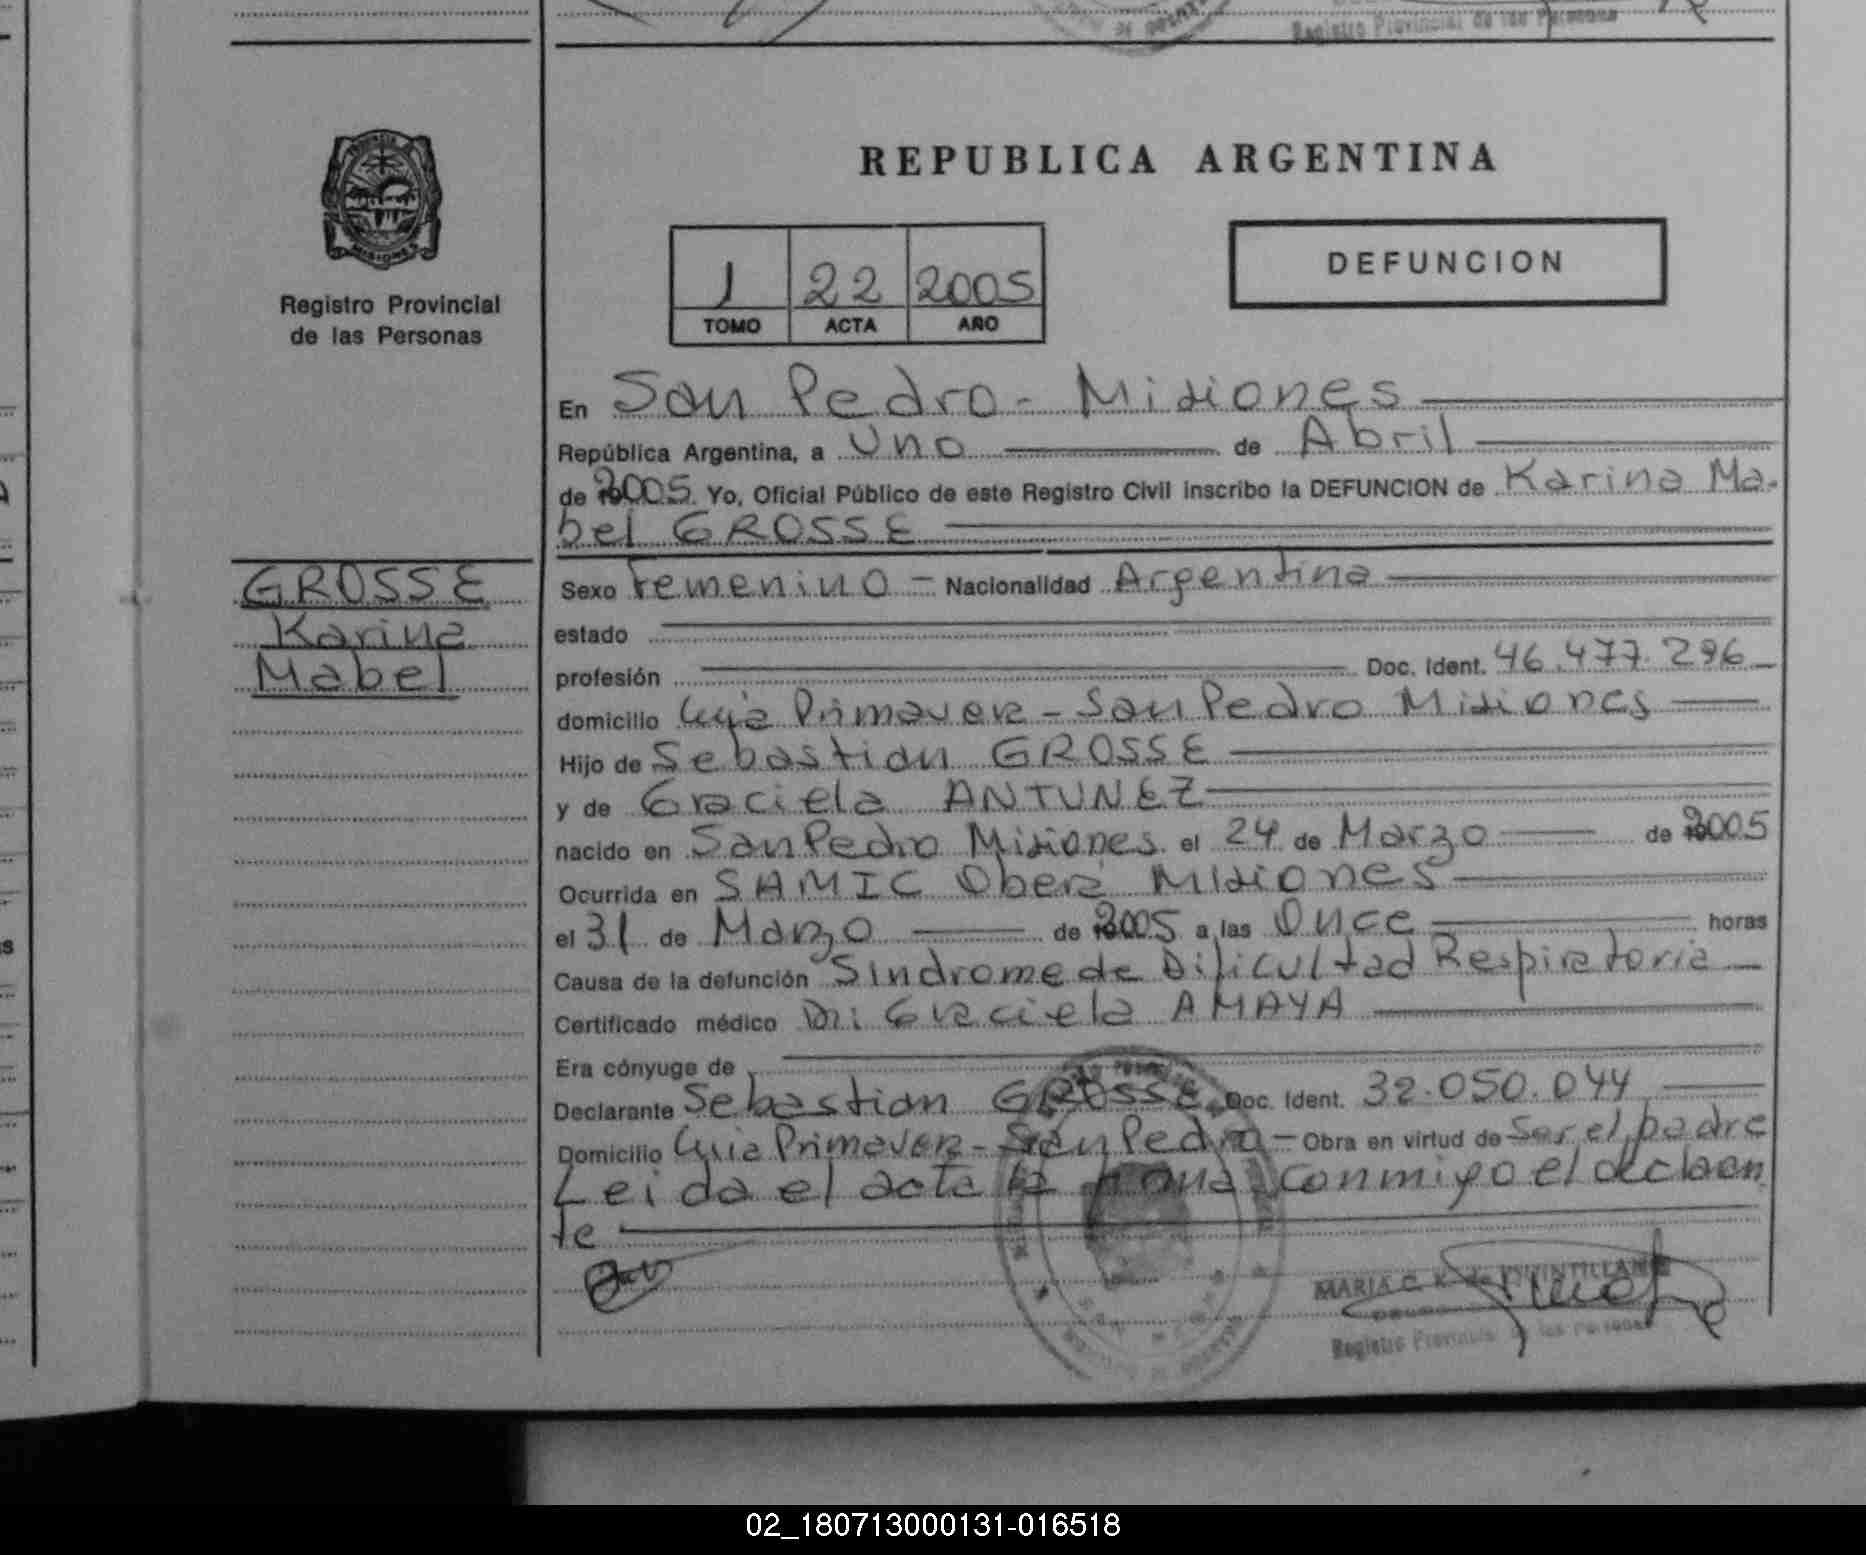 Registro Provincial de las Personas
PROVINCIA DE
MISIONES
Registro Provincial
de las Personas
REPUBLICA ARGENTINA
1 22 2005
TOMO ACTA AÑO
DEFUNCION
En San Pedro - Misiones
República Argentina, a Uno de Abril
de 2005. Yo, Oficial Público de este Registro Civil inscribo la DEFUNCION de Karina Ma-
bel GROSSE
GROSSE
Karina
Mabel
Sexo Femenino - Nacionalidad Argentina
estado
profesión Doc. Ident. 46.477.296
domicilio Luja Primavera - San Pedro Misiones
Hijo de Sebastian GROSSE
y de Graciela ANTUNEZ
nacido en San Pedro Misiones el 24 de Marzo de 2005
Ocurrida en SAMIC Obera Misiones
el 31 de Marzo de 2005 a las Once horas
Causa de la defunción Sindrome de Dificultad Respiratoria
Certificado médico Dr: Graciela AMAYA
Era cónyuge de
Declarante Sebastian GROSSE Doc. Ident. 32.050.044
Domicilio Primavera - San Pedro - Obra en virtud de Ser el padre
Leida el acta la firma conmigo el declaran
te
MARIA C. K. de QUINTILLAN
Registro Provincial de las Personas
02_180713000131-016518